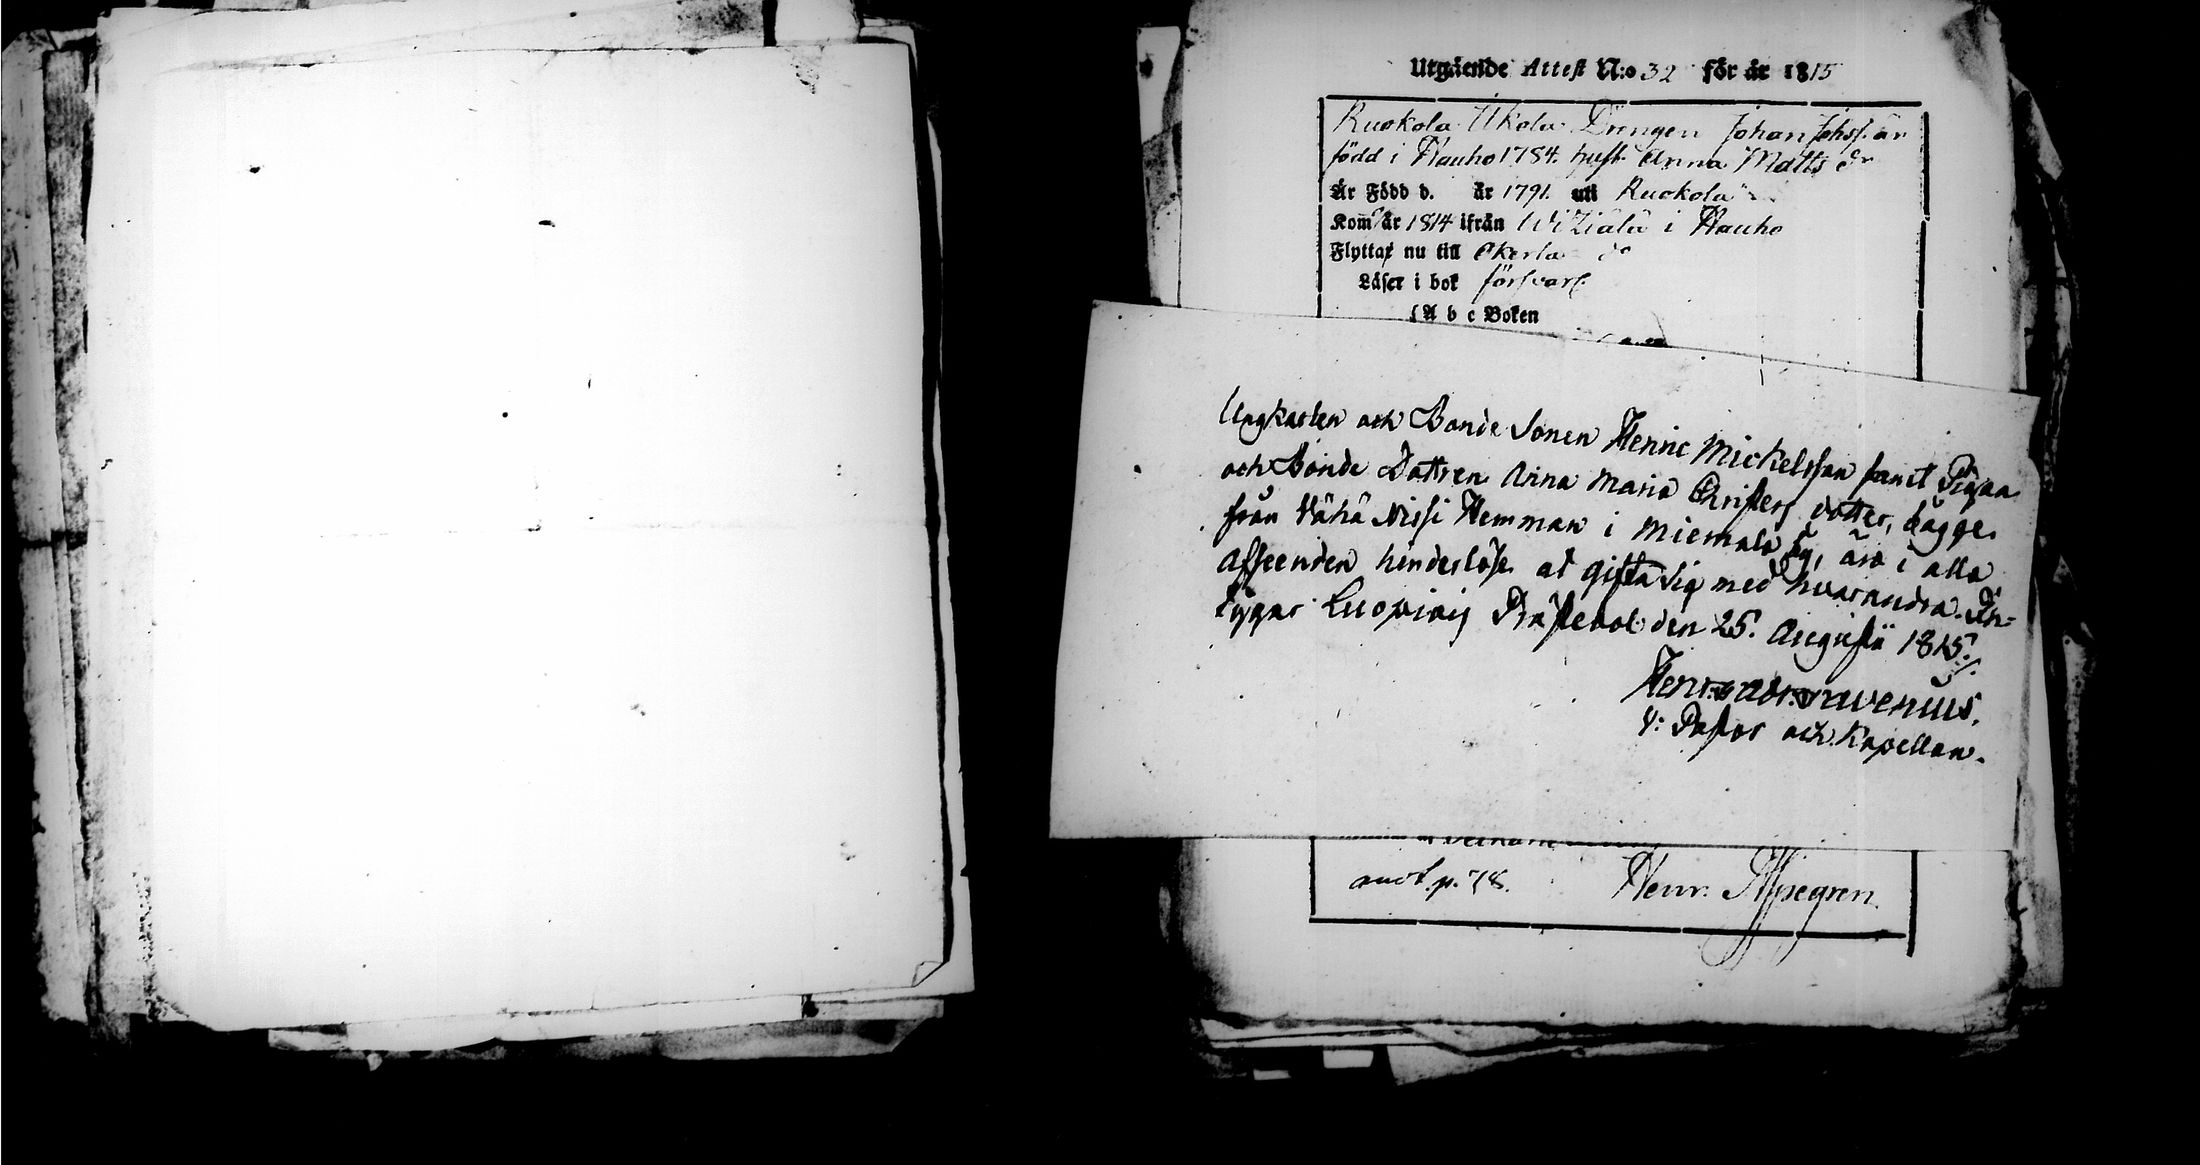 Utgående Attest N:o 32 för år 1815
Ruokola Ukola Drengen Johan Johsf. är
född i Hauho 1784. hust. Anna Matts dr
Är Född d. år 1791. uti Ruokola
Kom år 1814 ifrån Wiziälä i Hauho
Flyttar nu till
Läser i bok försvarl.
A b c Boken
Ungkarlen och Bonde Sonen Henric Mickelsson samt Pigan
och Bonde Dottren Anna Maria Christers dotter, bägge
från Vähä Nissi Hemman i Miemala by, äro i alla
afseenden hinderlöse at gifta sig med hvarandra. Be-
tygar Luopiois Prästebol den 25. Augusti 1815.
Henr: Adr:
V: Pastor och Kapellan.
anot. p. 78. Henr. Aspegren